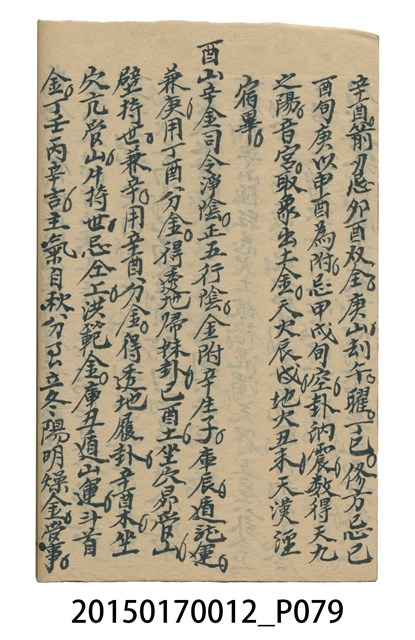 辛酉箭刃忌卯酉双全庚山刦午曜丁巳修方忌巳
酉旬庚以申酉為附忌甲戌旬空卦納震数得天九
之陽音宮取象出土金天火辰戌地火丑未天漢淫
宿畢
酉山辛金司令淨陰正五行陰金附辛生子庫辰遁記運
兼庚用丁酉分金得透地歸妹卦己酉土坐穴昴管山
壁持世兼辛用辛酉分金得透地履卦辛酉木坐
穴亢管山牛持世忌仝上洪範金庫丑遁山運斗首
金丁壬丙辛吉主氣自秋分至立冬陽明燥金管事
20150170012_P079